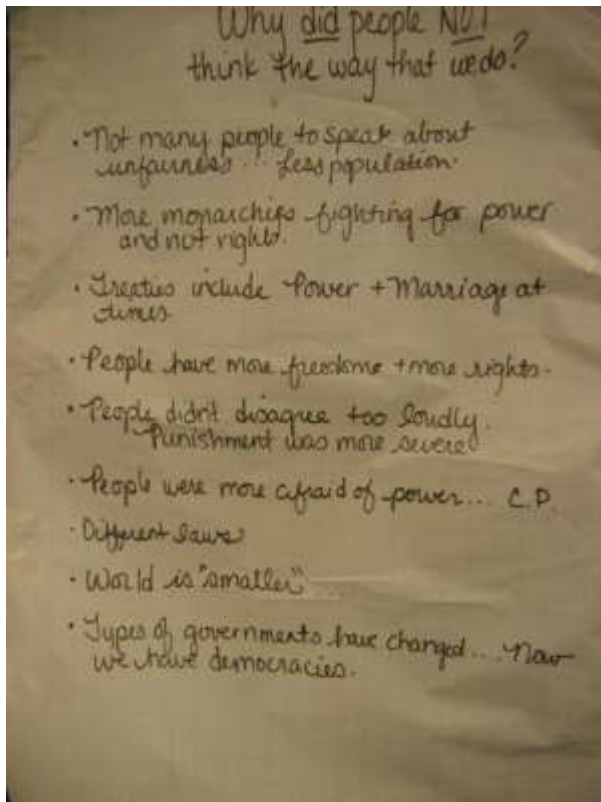 Why did people NOT
think the way that we do?
• Not many people to speak about
unfairness... Less population.
• More monarchies fighting for power
and not rights.
• Treaties include Power + Marriage at
times
• People have more freedoms + more rights.
• People didn't disagree too loudly.
Punishment was more severe
• People were more afraid of power... C.P.
• Different laws
• World is "smaller"
• Types of governments have changed... Now
we have democracies.